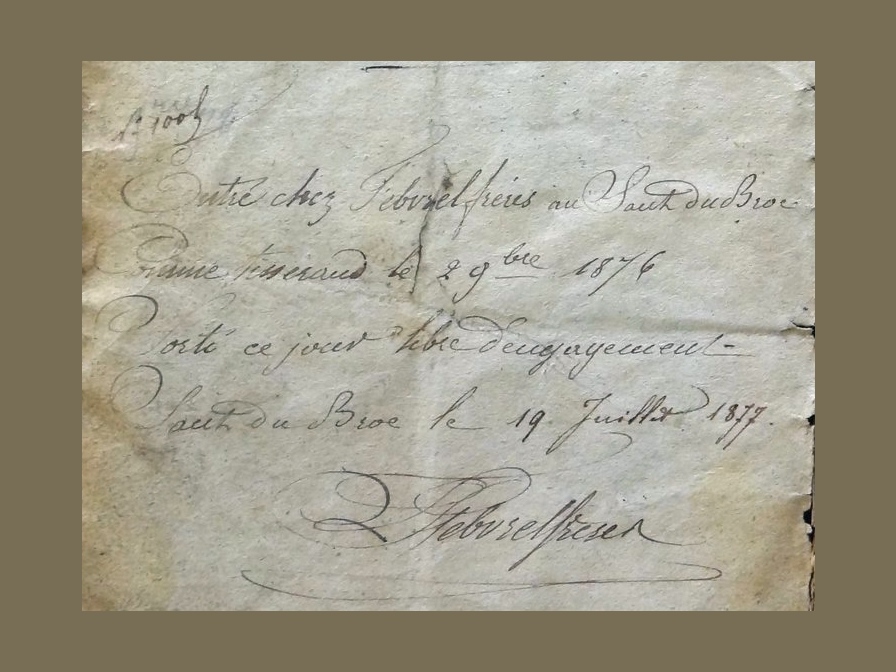 Entré chez Febvrel frères au Saut du Broc
Comme tisserand le 2 9bre 1876
Sorti ce jour libre d'engagement
Saut du Broc le 19 Juillet 1877.
Febvrel frères